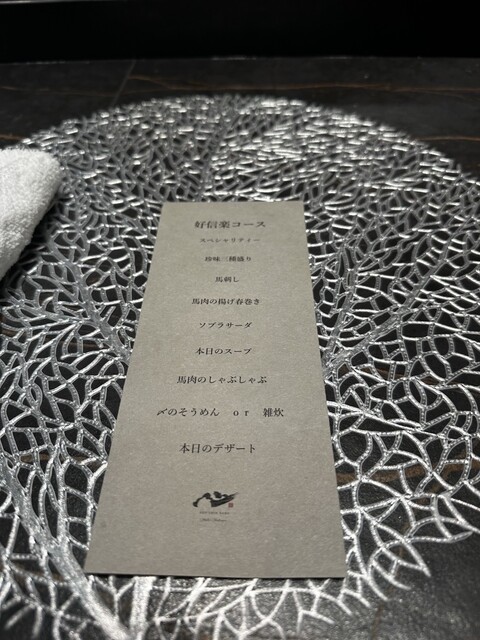 好信楽コース
スペシャリティー
珍味三種盛り
馬刺し
馬肉の揚げ春巻き
ソプラサーダ
本日のスープ
馬肉のしゃぶしゃぶ
〆のそうめん or 雑炊
本日のデザート